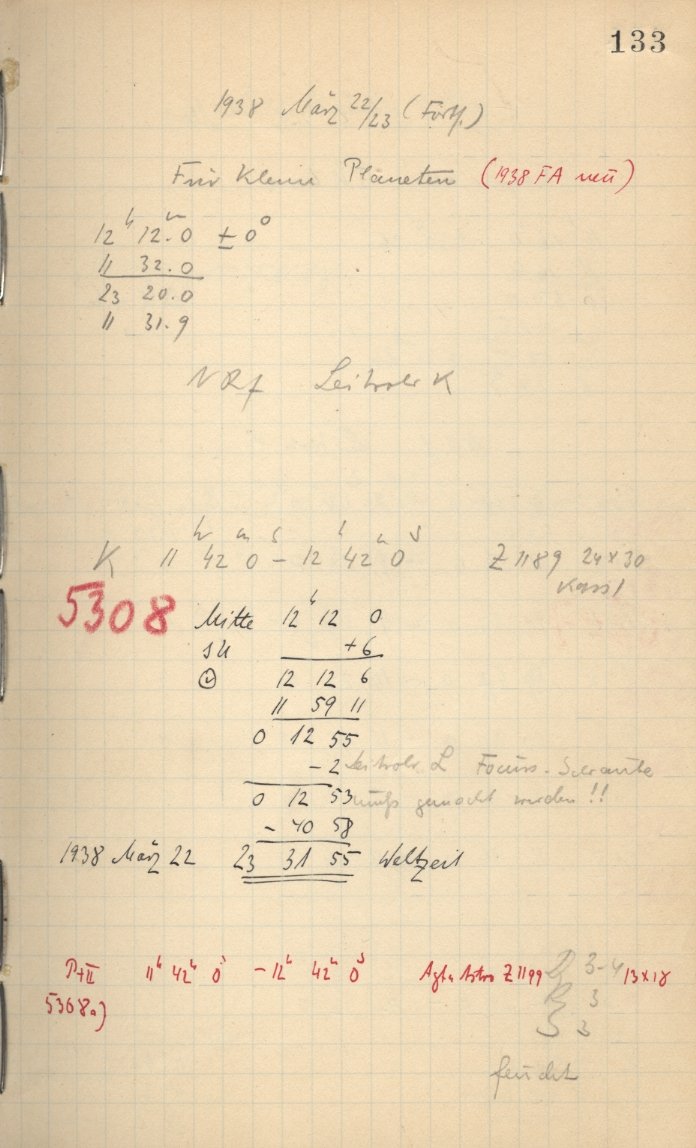 133
1938 März 22/23 (Fortf.)
Für Kleine Planeten (1938 FA neu)
12ʰ 12.ᵐ0 ± 0°
11 32.0
23 20.0
11 31.9
Leitrohr K
K 11ʰ 42ᵐ 0ˢ – 12ʰ 42ᵐ 0ˢ Z 1189 24×30
Kass 1
5308
Mitte 12ʰ 12 0
SU +6
12 12 6
11 59 11
0 12 55
– 2 Leitrohr L Focus-Schraube
0 12 53 muß gemacht werden!!
– 40 58
1938 März 22 23 31 55 Weltzeit
P+II 11ʰ 42ᵐ 0ˢ – 12ʰ 42ᵐ 0ˢ Agfa Astro Z 1199 13×18
3-4
5308a)
R 3
S 3
feucht